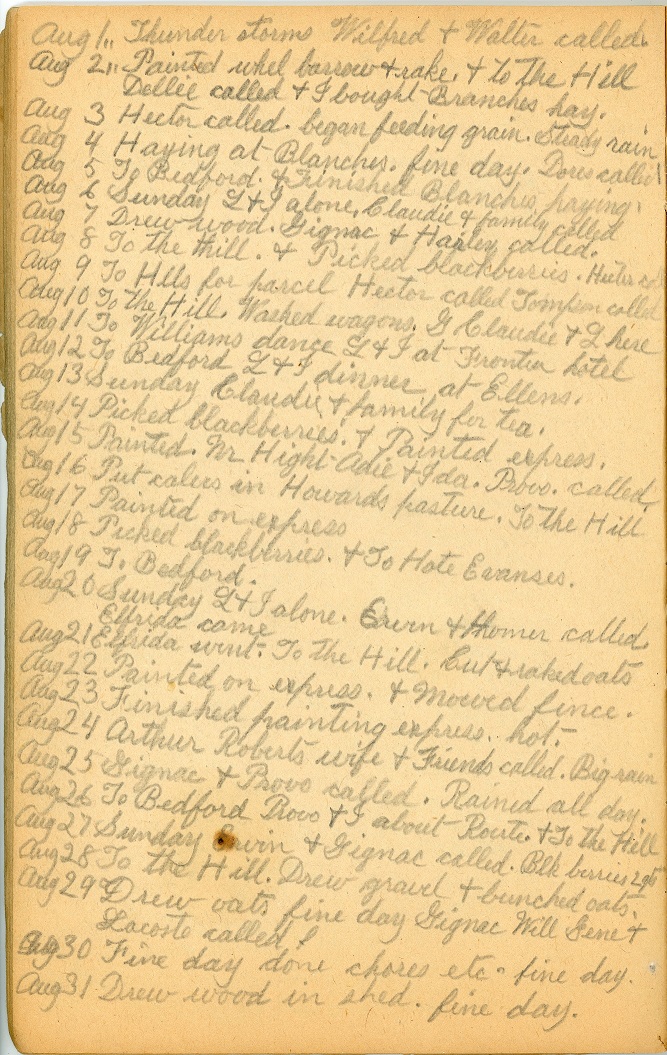 Aug 1,, Thunder storms Wilfred & Walter called.
Aug 2,, Painted whel barrow & rake. & to the Hill
Dellie called & I bought Branches hay.
Aug 3 Hector called. began feeding grain. Steady rain
Aug 4 Haying at Blanches. fine day. Dores called
Aug 5 To Bedford. & Finished Blanches haying.
Aug 6 Sunday L & I alone. Claudie & family called
Aug 7 Drew wood. Gignac & Harley called.
Aug 8 To the Hill. & Picked blackberries. Hecter
Aug 9 To Hlls for parcel Hector called Tompson called
Aug 10 To the Hill. Washed wagons. G Claudie & L here
Aug 11 To Williams dance L & I at Frontier hotel
Aug 12 To Bedford L & I dinner at Ellens.
Aug 13 Sunday Claudie & family for tea.
Aug 14 Picked blackberries. & Painted express.
Aug 15 Painted. Mr Hight Adie & Ida. Provo. called.
Aug 16 Put calves in Howards pasture. To the Hill
Aug 17 Painted on express
Aug 18 Picked blackberries. & To Hote Evanses.
Aug 19 To Bedford.
Aug 20 Sunday L & I alone. Erwin & Homer called
Elfrida came
Aug 21 Elfrida went. To the Hill. Cut & raked oats
Aug 22 Painted on express. & Mowed fince.
Aug 23 Finished painting express. hot.
Aug 24 Arthur Roberts wife & Friends called. Big rain
Aug 25 Gignac & Provo called. Rained all day.
Aug 26 To Bedford Provo & I about Route. & To the Hill
Aug 27 Sunday Ervin & Gignac called. Blk berries 2 qts
Aug 28 To the Hill. Drew gravel & bunched oats.
Aug 29 Drew oats fine day Gignac Will Gene &
Lacoste called
Aug 30 Fine day done chores etc. fine day.
Aug 31 Drew wood in shed. fine day.